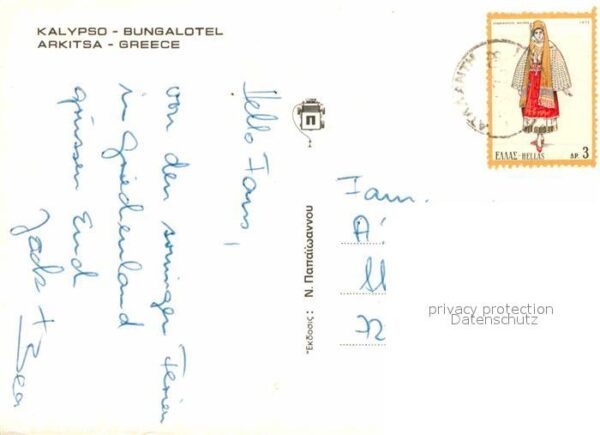 KALYPSO - BUNGALOTEL
ARKITSA - GREECE
Hello Fans,
von den sonnigen Ferien
in Griechenland
grüssen Euch
+ Bea
Ἔκδοσις: Ν. Παπαϊωάννου
Π
1972
ΕΛΛΑΣ-HELLAS ΔΡ. 3
Fam.
privacy protection
Datenschutz